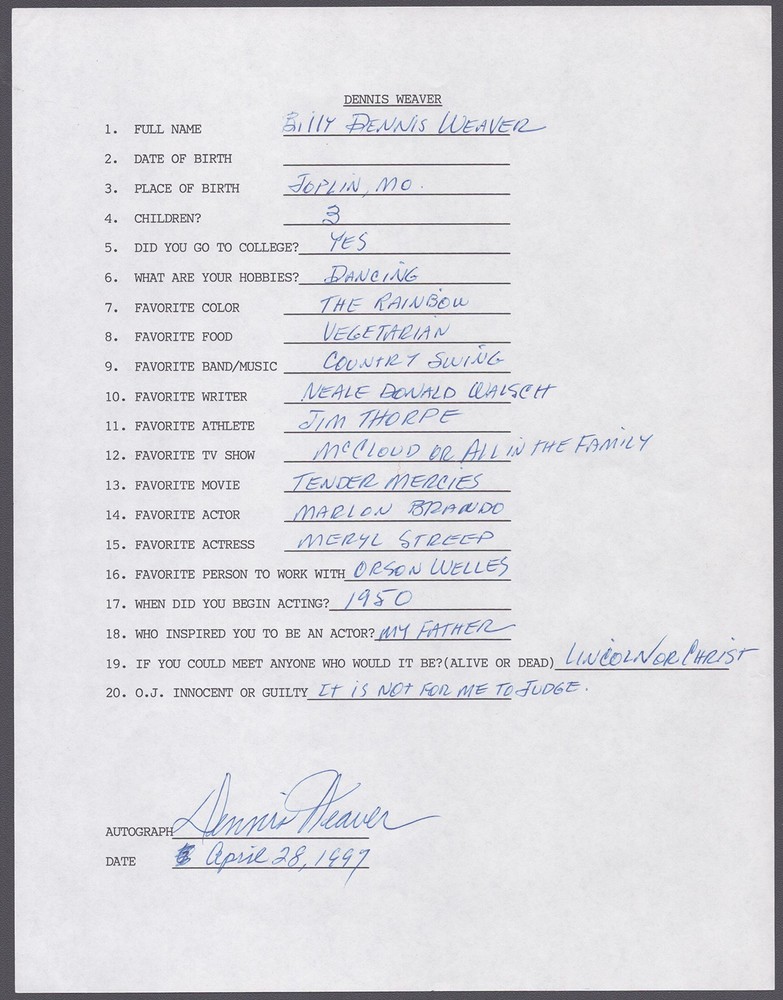 DENNIS WEAVER
1. FULL NAME Billy DENNIS WEAVER
2. DATE OF BIRTH
3. PLACE OF BIRTH JOPLIN, MO.
4. CHILDREN? 3
5. DID YOU GO TO COLLEGE? YES
6. WHAT ARE YOUR HOBBIES? DANCING
7. FAVORITE COLOR THE RAINBOW
8. FAVORITE FOOD VEGETARIAN
9. FAVORITE BAND/MUSIC COUNTRY SWING
10. FAVORITE WRITER NEALE DONALD WALSCH
11. FAVORITE ATHLETE JIM THORPE
12. FAVORITE TV SHOW McCLOUD OR ALL IN THE FAMILY
13. FAVORITE MOVIE TENDER MERCIES
14. FAVORITE ACTOR MARLON BRANDO
15. FAVORITE ACTRESS MERYL STREEP
16. FAVORITE PERSON TO WORK WITH ORSON WELLES
17. WHEN DID YOU BEGIN ACTING? 1950
18. WHO INSPIRED YOU TO BE AN ACTOR? MY FATHER
19. IF YOU COULD MEET ANYONE WHO WOULD IT BE?(ALIVE OR DEAD) LINCOLN OR CHRIST
20. O.J. INNOCENT OR GUILTY It is NOT FOR ME TO JUDGE.
AUTOGRAPH Dennis Weaver
DATE April 28, 1997